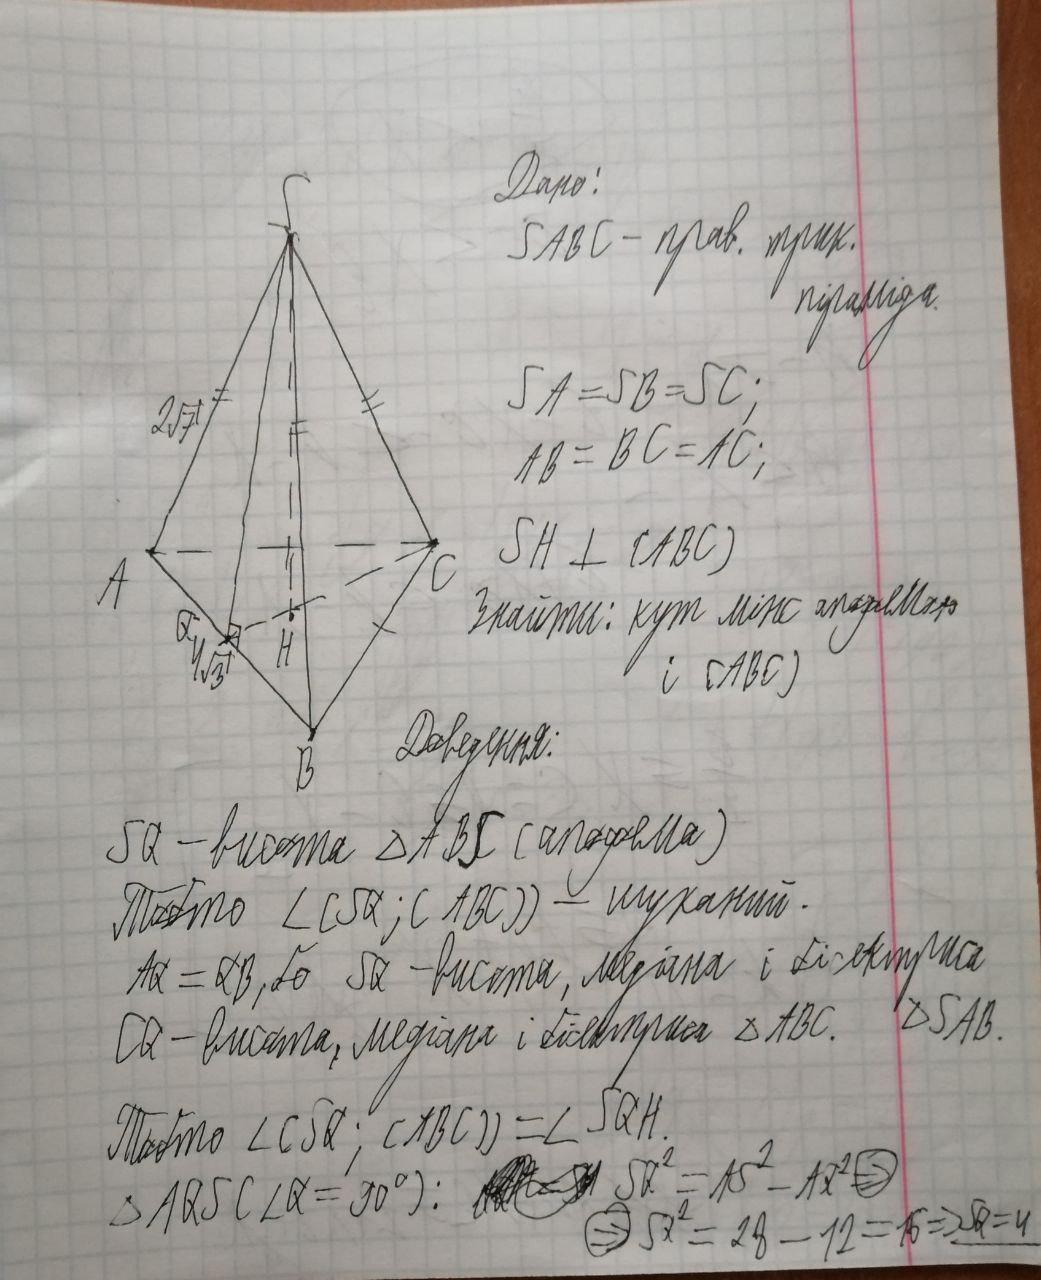 S
Дано:
SABC – прав. трик.
піраміда.
SA = SB = SC;
2√7
AB = BC = AC;
SH ⊥ (ABC)
A
C
Знайти: кут між апофемою
Q
H
4√3
і (ABC)
B
Доведення:
SQ – висота △ABS (апофема)
Тобто ∠(SQ; (ABC)) – шуканий.
AQ = QB, бо SQ – висота, медіана і бісектриса
△SAB.
CQ – висота, медіана і бісектриса △ABC.
Тобто ∠(SQ; (ABC)) = ∠SQH.
△AQS (∠Q = 90°): SQ² = AS² – AQ² ⇒
⇒ SQ² = 28 – 12 = 16 ⇒ SQ = 4